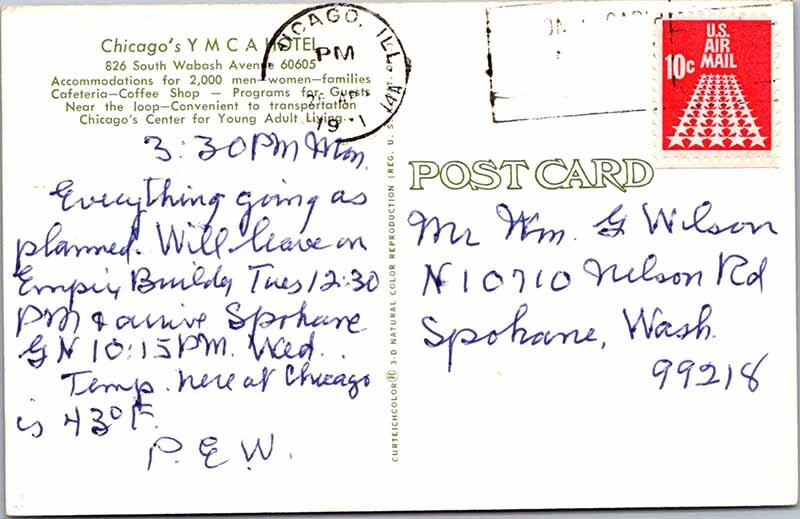 Chicago's Y M C A HOTEL
826 South Wabash Avenue 60605
Accommodations for 2,000 men—women—families
Cafeteria—Coffee Shop — Programs for Guests
Near the loop—Convenient to transportation
Chicago's Center for Young Adult Living.
CHICAGO, ILL.
PM
U.S.
AIR
MAIL
10c
3:30 PM Mon.
Everything going as
planned. Will leave on
Empire Buildg Tues 12:30
PM & arrive Spokane
GN 10:15 PM. Wed.
Temp. here at Chicago
is 43° F.
P. E. W.
CURTEICHCOLOR® 3-D NATURAL COLOR REPRODUCTION (REG. U.S.
POST CARD
Mr Wm. G Wilson
N10710 Nelson Rd
Spokane, Wash.
99218